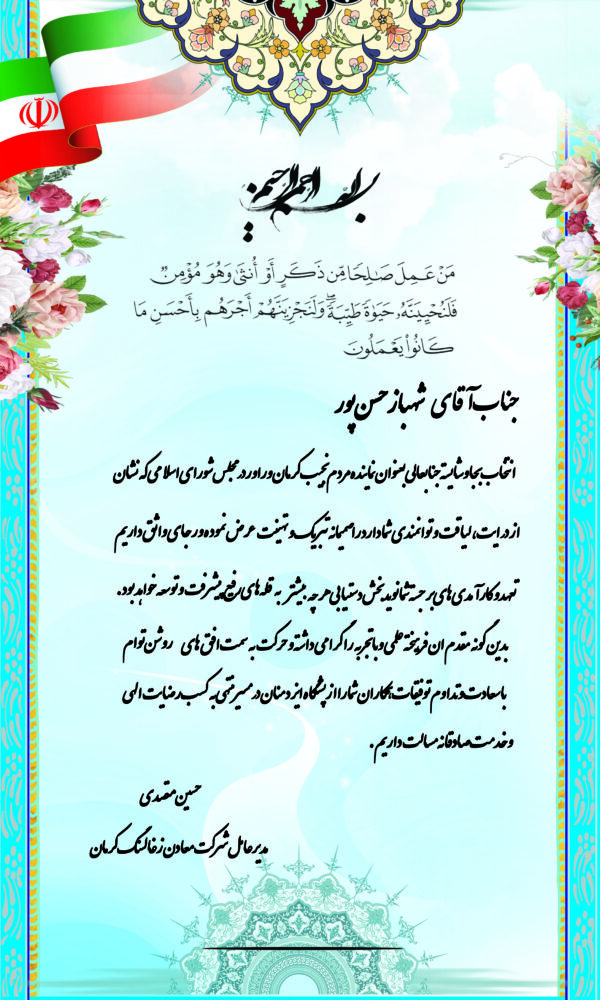 بسم الله الرحمن الرحیم
مَنْ عَمِلَ صَـٰلِحًا مِّن ذَكَرٍ أَوْ أُنثَىٰ وَهُوَ مُؤْمِنٌ
فَلَنُحْيِيَنَّهُۥ حَيَوٰةً طَيِّبَةً ۖ وَلَنَجْزِيَنَّهُمْ أَجْرَهُم بِأَحْسَنِ مَا
كَانُوا۟ يَعْمَلُونَ
جناب آقای شهباز حسن پور
انتخاب بجا و شایسته جنابعالی بعنوان نماینده مردم نجیب کرمان و راور در مجلس شورای اسلامی که نشان
از درایت، لیاقت و توانمندی شما دارد را صمیمانه تبریک و تهنیت عرض نموده و رجای واثق داریم
تعهد و کارآمدی های برجسته شما نوید بخش دستیابی هر چه بیشتر به قله های رفیع پیشرفت و توسعه خواهد بود.
بدین گونه مقدم ان فریخته علمی و با تجربه را گرامی داشته و حرکت به سمت افق های روشن توام
با سعادت و تداوم توفیقات همکاران شما را از پیشگاه ایزد منان در مسیر متقی به کسب رضایت الهی
و خدمت صادقانه مسالت داریم.
حسین مقصدی
مدیر عامل شرکت معادن زغالسنگ کرمان